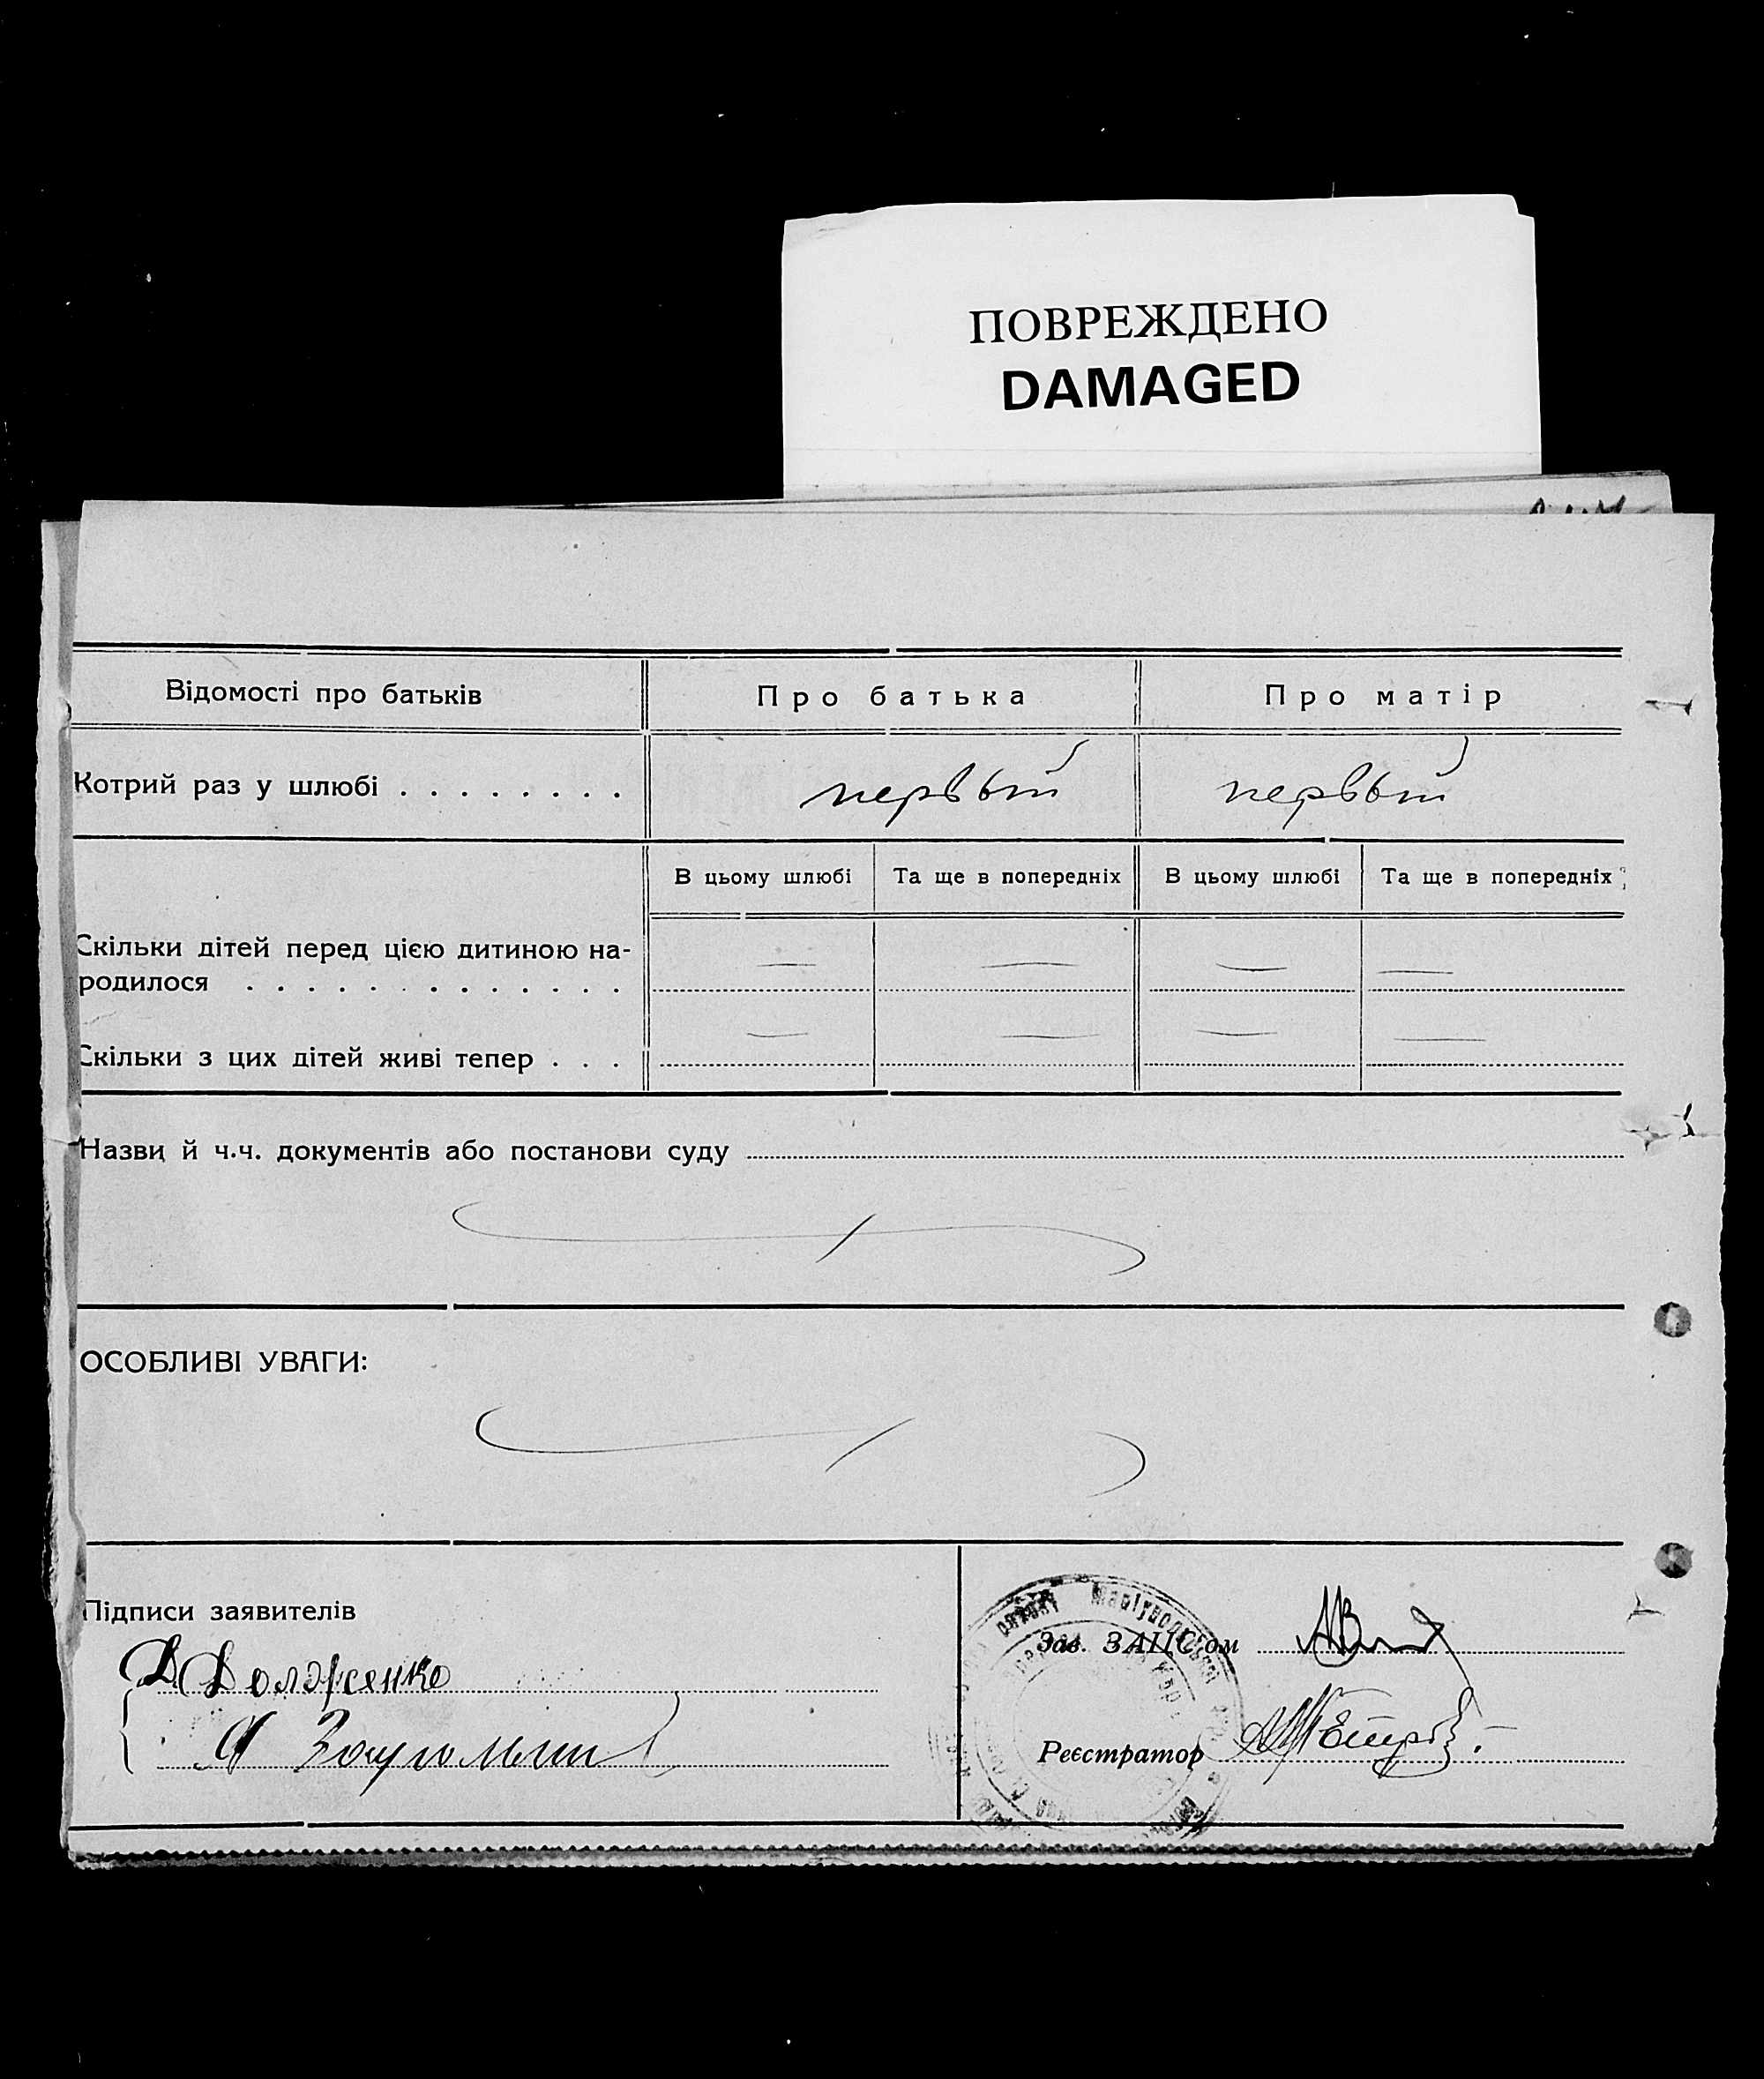 ПОВРЕЖДЕНО
DAMAGED
Відомості про батьків
Про батька
Про матір
Котрий раз у шлюбі
первый
первый
В цьому шлюбі
Та ще в попередніх
В цьому шлюбі
Та ще в попередніх
Скільки дітей перед цією дитиною на-
родилося
Скільки з цих дітей живі тепер
Назви й ч.ч. документів або постанови суду
ОСОБЛИВІ УВАГИ:
Підписи заявителів
Зав. ЗАЦСом
Д Долженко
Реєстратор